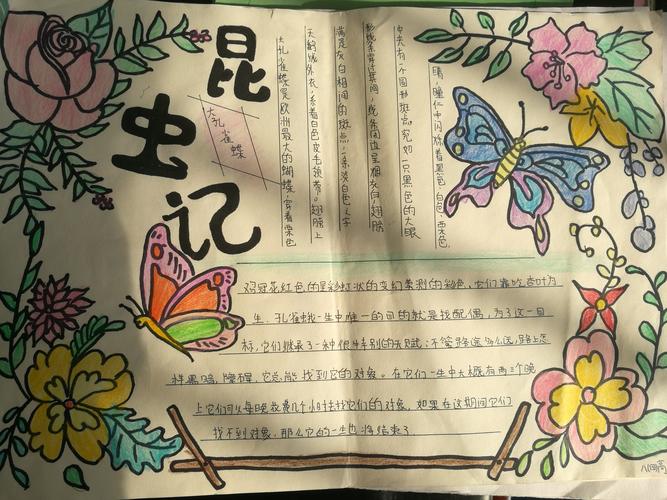 昆虫记
大孔雀蝶
大孔雀蝶是欧洲最大的蝴蝶,穿着栗色
天鹅绒外衣,系着白色皮毛领带。翅膀上
满是灰白相间的斑点,一条淡白色之字
形线条穿过其间,线条周边呈烟灰白,翅膀
中央有一个圆形斑点,宛如一只黑色的大眼
睛,瞳仁中闪烁着黑色,白色,栗色,
鸡冠花红色的呈彩虹状的变幻莫测的彩色,它们靠吃杏叶为
生,孔雀蛾一生中唯一的目的就是找配偶,为了这一目
标,它们继承了一种很特别的天赋:不管路途多么远,路上怎
样黑暗,障碍,它总能找到它的对象。在它们一生中大概有两三个晚
上它们可以每晚花费几个小时去找它们的对象,如果在这期间它们
找不到对象,那么它的一生也将结束了